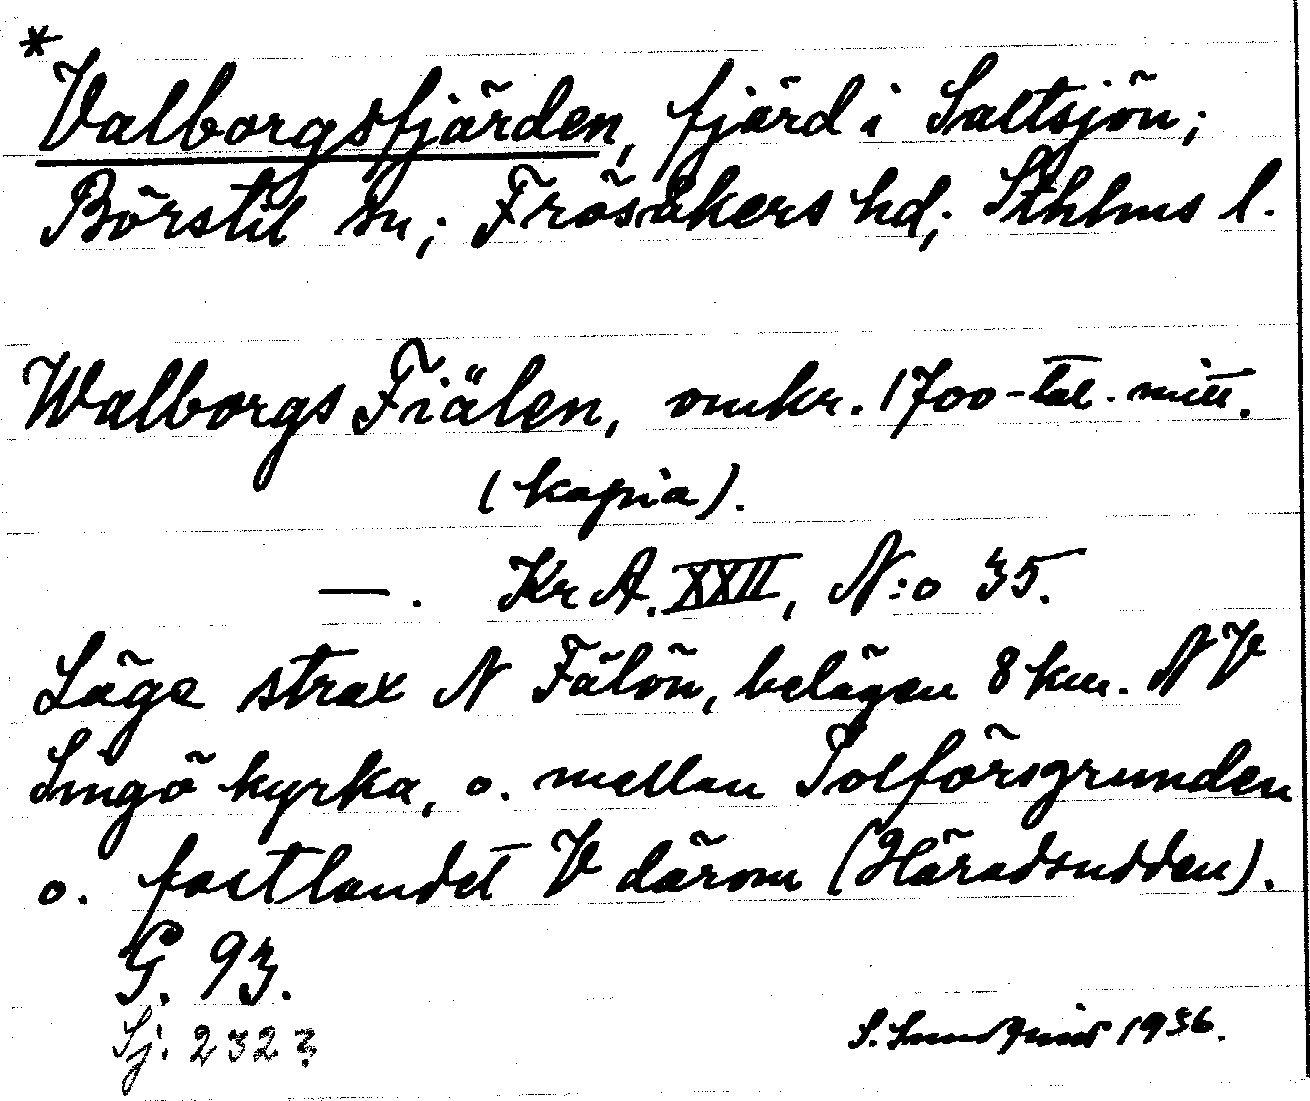 * Valborgsfjärden, fjärd i Saltsjön;
Börstil sn; Frösåkers hd; Sthlms l.
Walborgs Fiälen, omkr. 1700-tal. mitt.
(kopia).
— . Kr A. XXII, N:o 35.
Läge strax N Fälön, belägen 8 km. NV
Singö kyrka, o. mellan Solförsgrunden
o. fastlandet V därom (Häradsudden).
G. 93.
Sj. 232
S. Lundquist 1936.